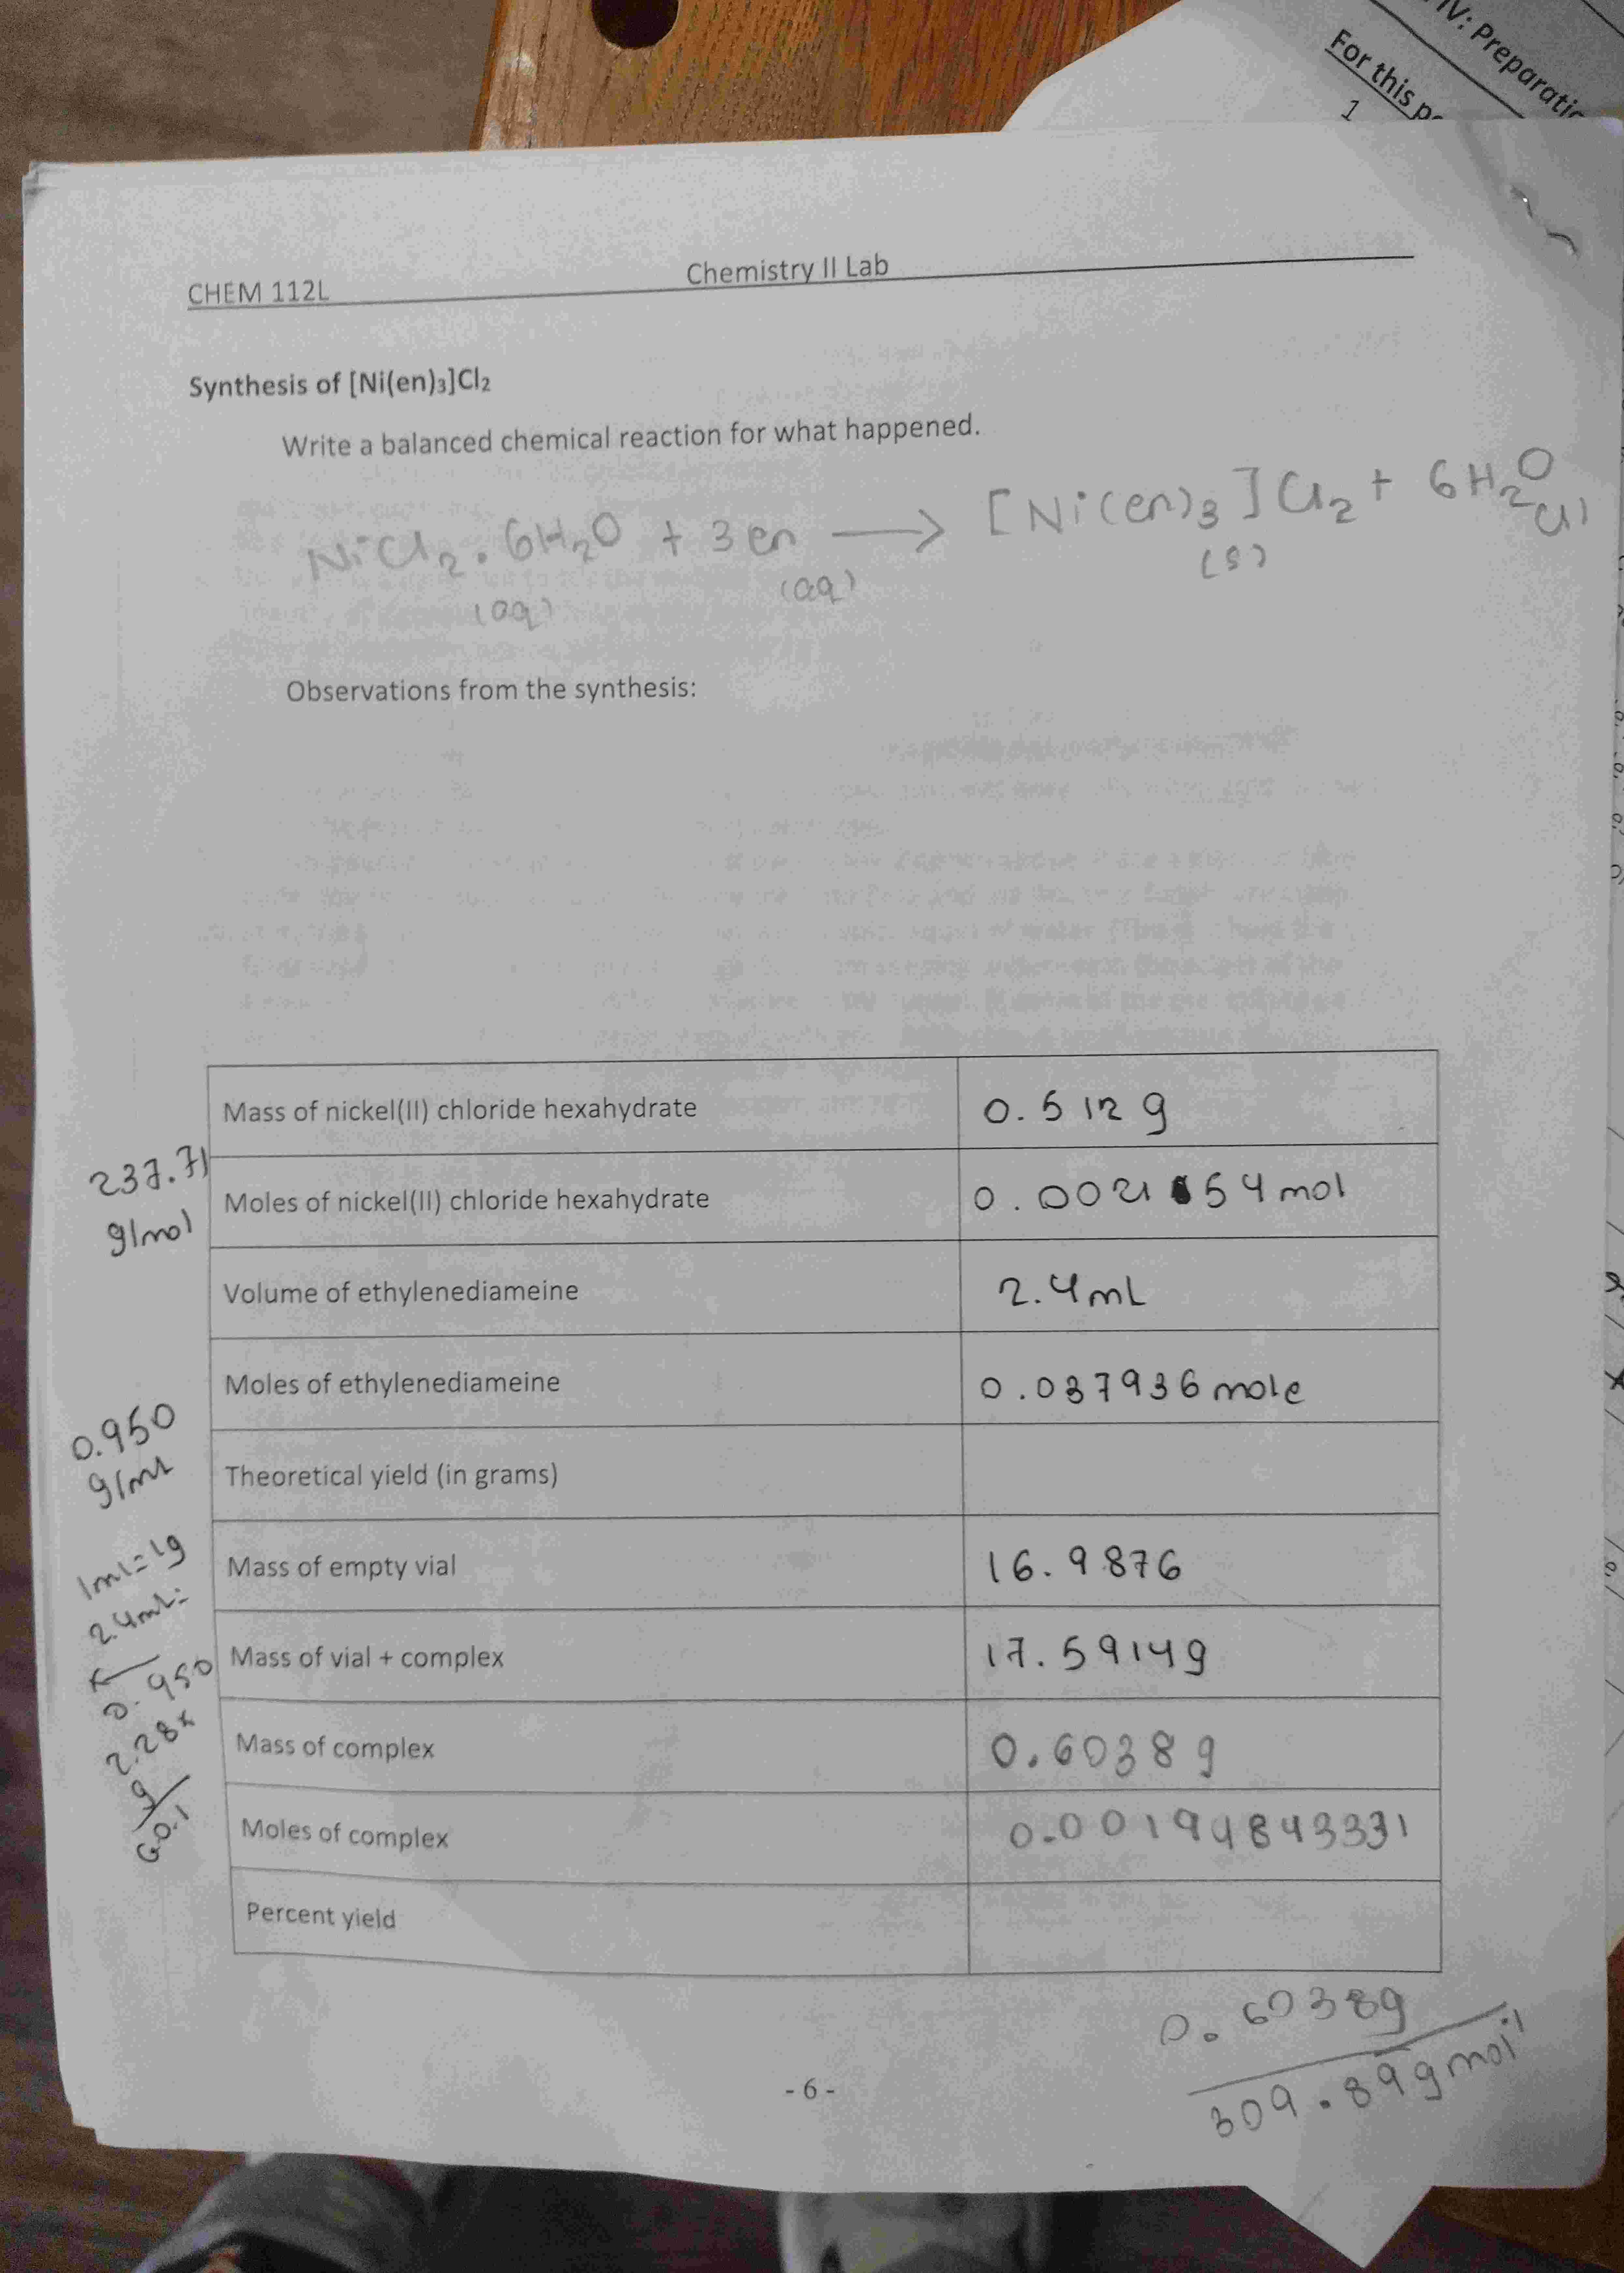 IV: Preparatio
For this p
1
CHEM 112L
Chemistry II Lab
Synthesis of [Ni(en)₃]Cl₂
Write a balanced chemical reaction for what happened.
NiCl₂·6H₂O + 3en → [Ni(en)₃]Cl₂ + 6H₂O
(aq) (aq) (s) (l)
Observations from the synthesis:
Mass of nickel(II) chloride hexahydrate 0.512 g
237.71
g/mol
Moles of nickel(II) chloride hexahydrate 0.002154 mol
Volume of ethylenediameine 2.4mL
Moles of ethylenediameine 0.037936 mole
0.950
g/mL
Theoretical yield (in grams)
1mL=1g
2.4mL:
Mass of empty vial 16.9876
Mass of vial + complex 17.5914g
0.950
2.28x
g
60.1
Mass of complex 0.6038g
Moles of complex 0.00194843331
Percent yield
0.6038g
309.89gmol⁻¹
- 6 -